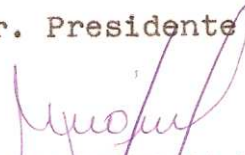 r. Presidente